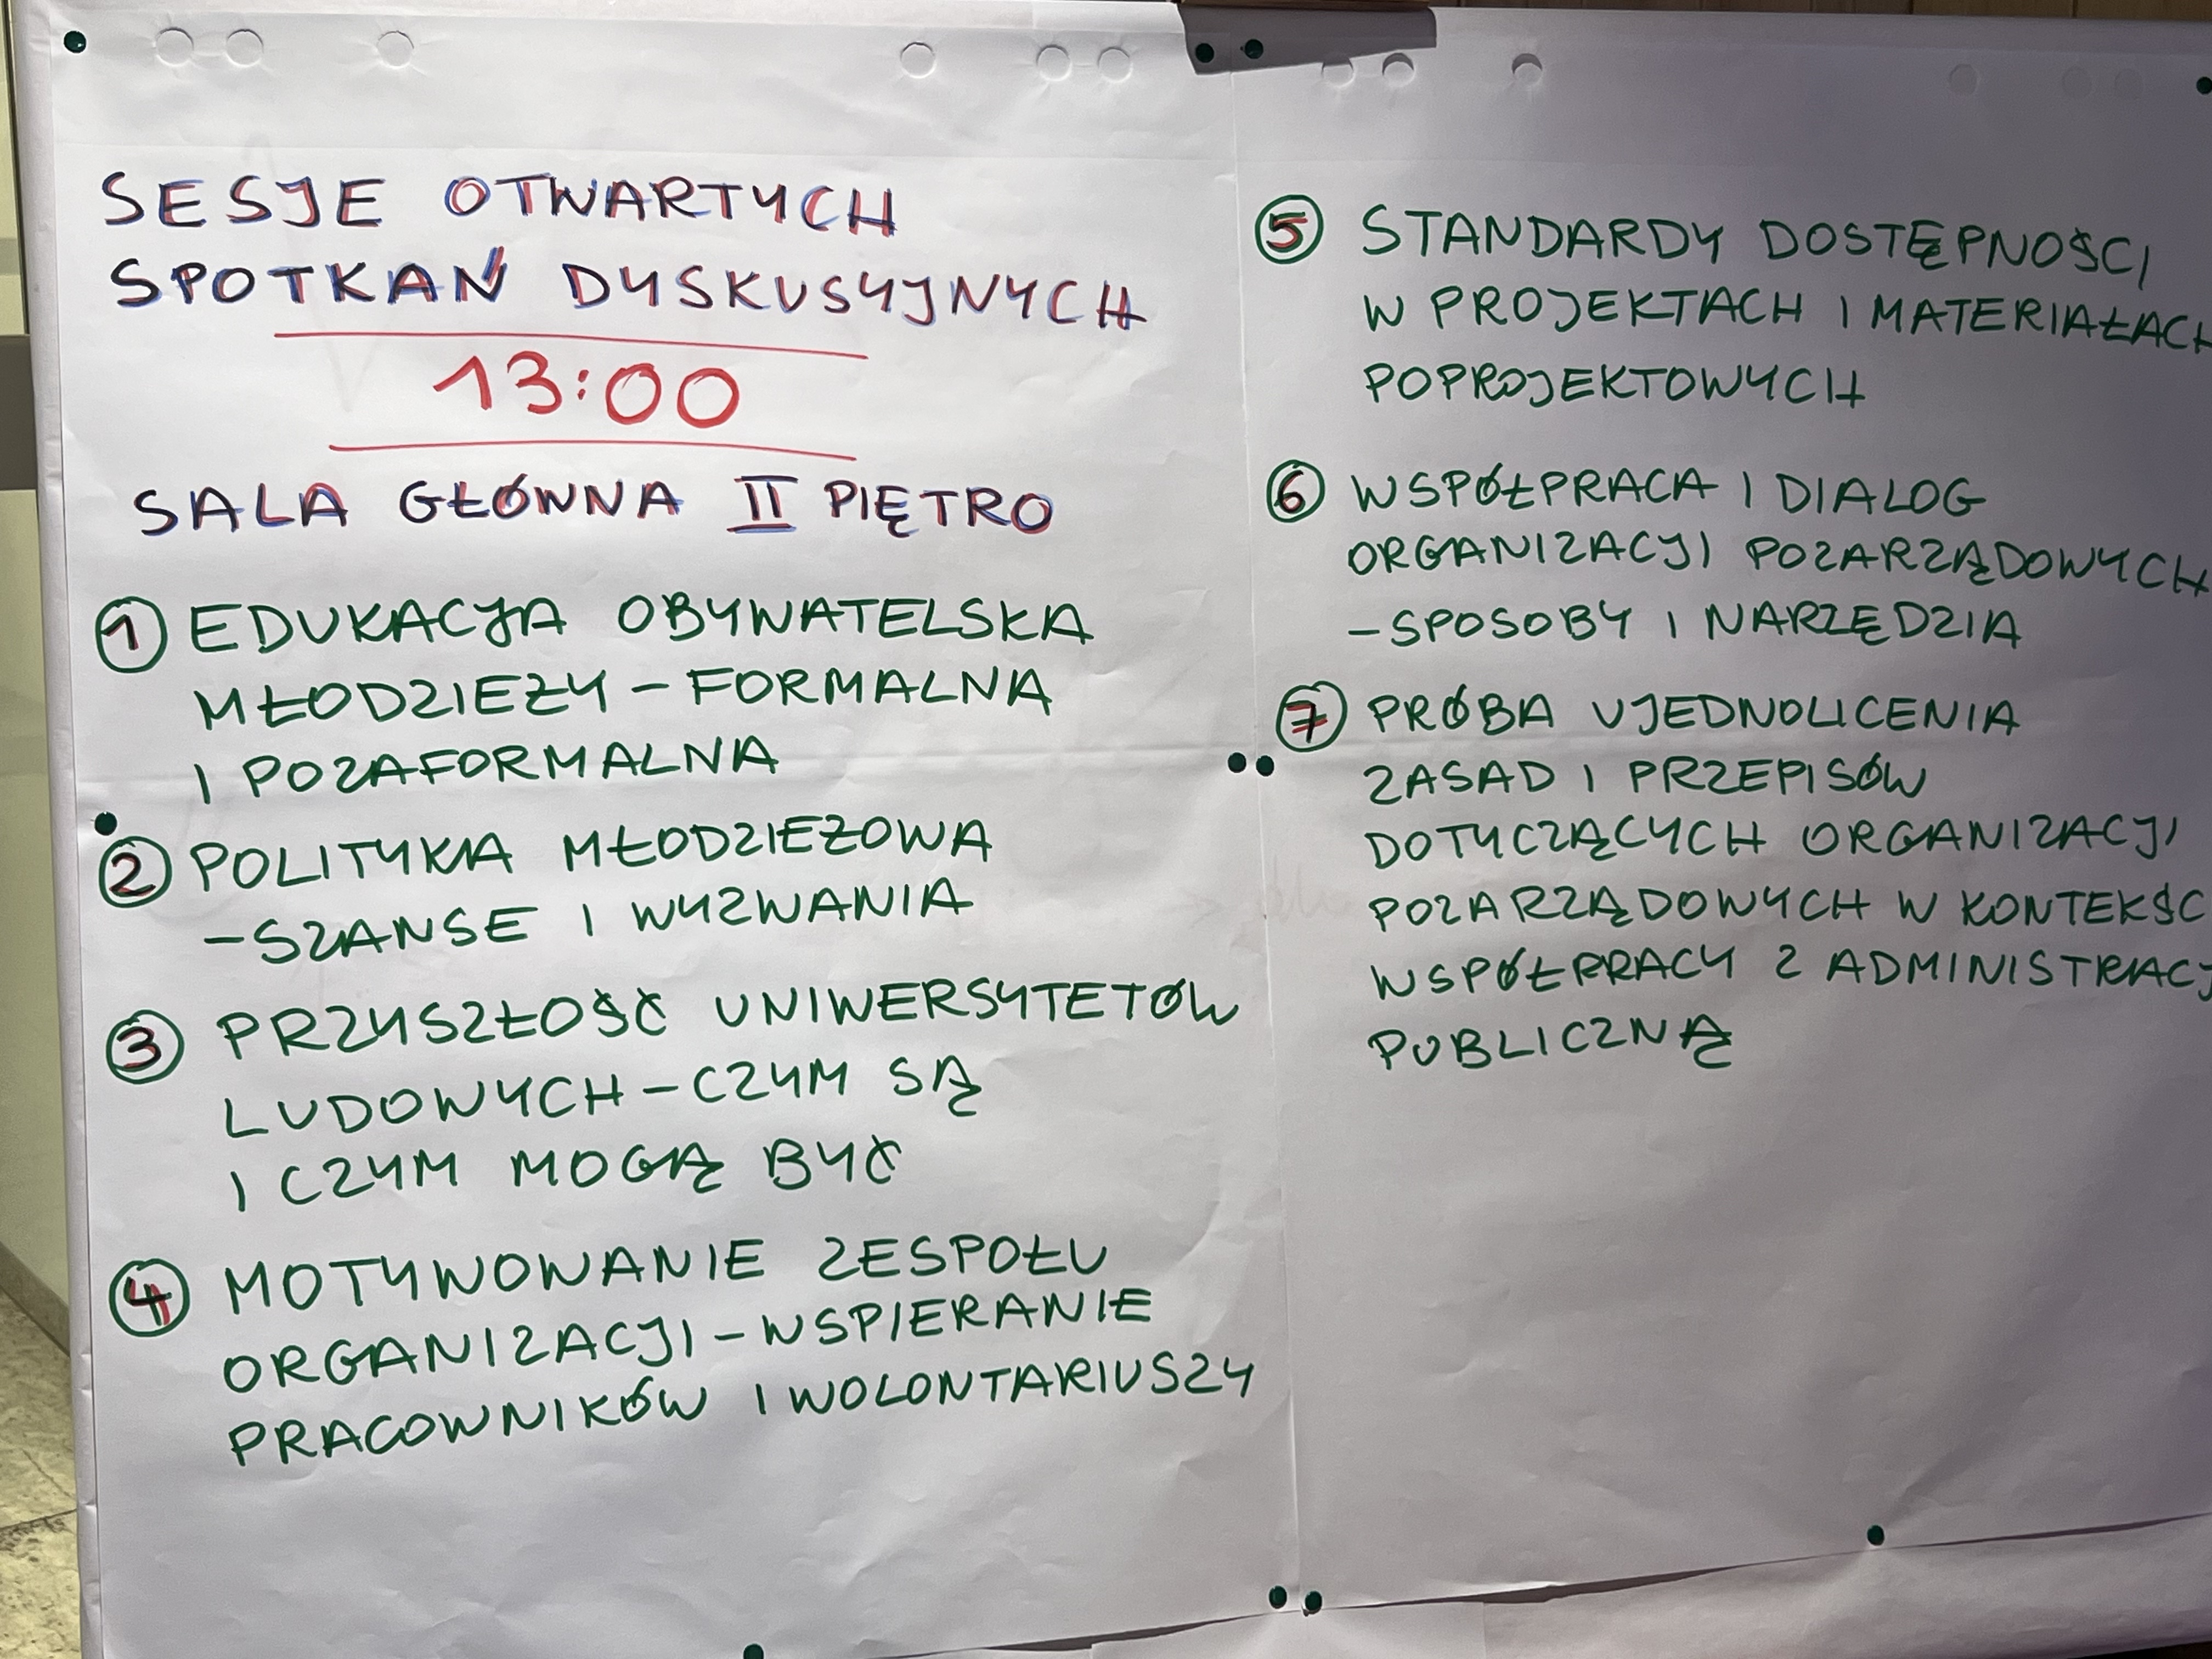 SESJE OTWARTYCH
SPOTKAŃ DYSKUSYJNYCH
13:00
SALA GŁÓWNA II PIĘTRO
1 EDUKACJA OBYWATELSKA
MŁODZIEŻY – FORMALNA
I POZAFORMALNA
2 POLITYKA MŁODZIEŻOWA
– SZANSE I WYZWANIA
3 PRZYSZŁOŚĆ UNIWERSYTETÓW
LUDOWYCH – CZYM SĄ
I CZYM MOGĄ BYĆ
4 MOTYWOWANIE ZESPOŁU
ORGANIZACJI – WSPIERANIE
PRACOWNIKÓW I WOLONTARIUSZY
5 STANDARDY DOSTĘPNOŚCI
W PROJEKTACH I MATERIAŁACH
POPROJEKTOWYCH
6 WSPÓŁPRACA I DIALOG
ORGANIZACJI POZARZĄDOWYCH
– SPOSOBY I NARZĘDZIA
7 PRÓBA UJEDNOLICENIA
ZASAD I PRZEPISÓW
DOTYCZĄCYCH ORGANIZACJI
POZARZĄDOWYCH W KONTEKŚC
WSPÓŁPRACY Z ADMINISTRACJ
PUBLICZNĄ